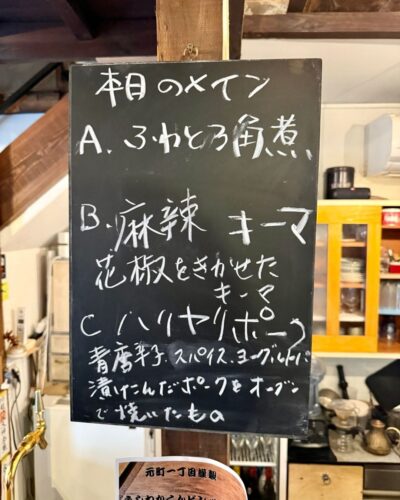 本日のメイン
A. ふわとろ角煮
B. 麻辣 キーマ
花椒をきかせた
キーマ
C ハリヤリポーク
青唐辛子、スパイス、ヨーグルトに
漬けこんだポークをオーブン
で焼いたもの
元町一丁目謹製